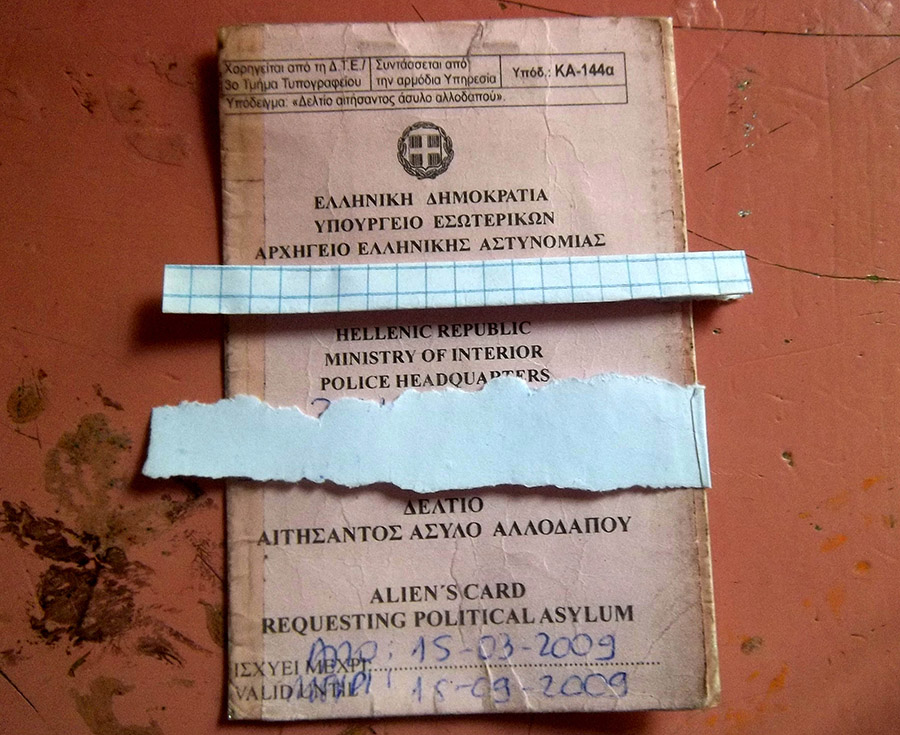 Χορηγείται από τη Δ.Τ.Ε./ Συντάσσεται από Υπόδ.: ΚΑ-144α
3ο Τμήμα Τυπογραφείου την αρμόδια Υπηρεσία
Υπόδειγμα: «Δελτίο αιτήσαντος άσυλο αλλοδαπού».
ΕΛΛΗΝΙΚΗ ΔΗΜΟΚΡΑΤΙΑ
ΥΠΟΥΡΓΕΙΟ ΕΣΩΤΕΡΙΚΩΝ
ΑΡΧΗΓΕΙΟ ΕΛΛΗΝΙΚΗΣ ΑΣΤΥΝΟΜΙΑΣ
HELLENIC REPUBLIC
MINISTRY OF INTERIOR
POLICE HEADQUARTERS
ΔΕΛΤΙΟ
ΑΙΤΗΣΑΝΤΟΣ ΑΣΥΛΟ ΑΛΛΟΔΑΠΟΥ
ALIEN´S CARD
REQUESTING POLITICAL ASYLUM
ΑΠΟ: 15-03-2009
ΙΣΧΥΕΙ ΜΕΧΡΙ
VALID UNTIL ΜΕΧΡΙ: 15-09-2009